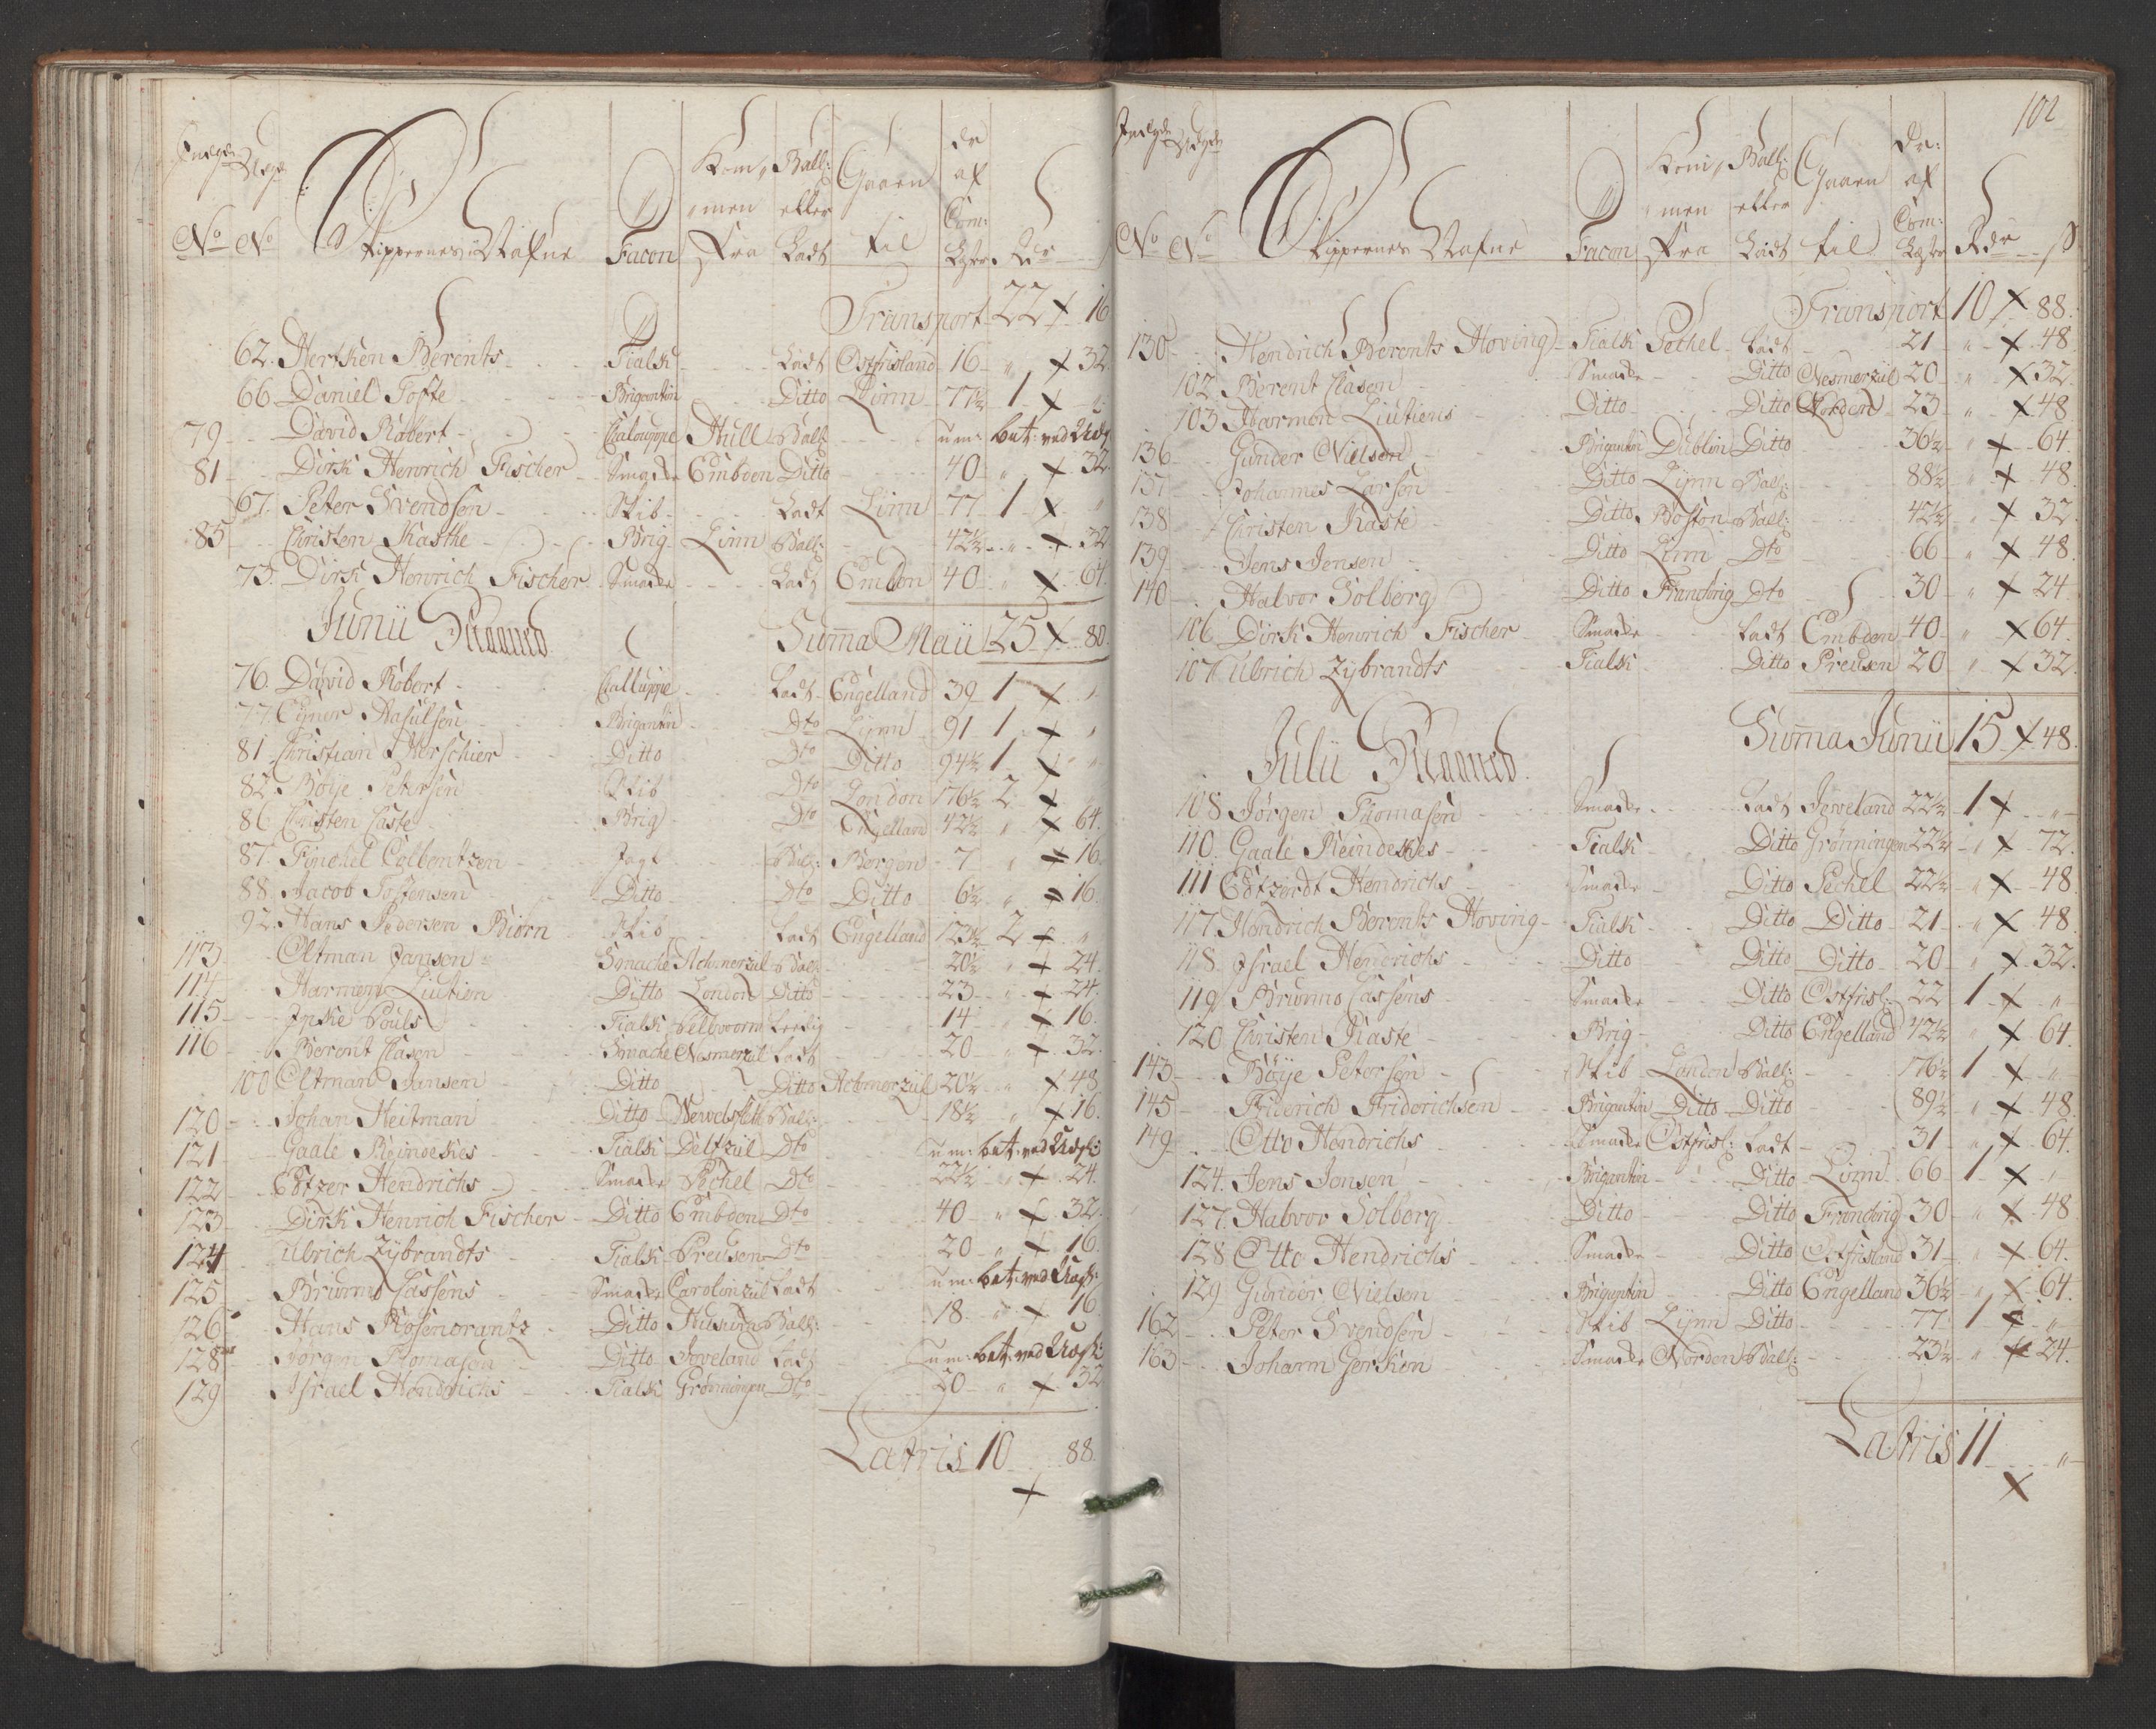 Kom, Ball: Gaaen de
men eller af
Com:
No No Skippernes Nafne Facon Fra Ladt til Lester Rdr
Transport 22 16
62. Hertken Berents Tialk Ladt Ostfrisland 16 " 32
66 Daniel Tofte Brigantin Ditto Linn 77½ 1 "
79 David Robert Chalouppe Hull Ball um: bet: ved
81 Dirk Henrich Fischer Smakke Embden Ditto 40 " 32
67. Peter Svendsen Skib Ladt Linn 77 1 "
85 Christen Kasthe Brig Linn Ball: 42½ " 32
73. Dirk Henrich Fischer Smakke Ladt Embden 40 " 64.
Junii Maaned Summa Maii 25 80.
76. David Robert Challuppe Ladt Engelland 39 1 "
77. Ejner Aasulsen Brigantin Dto Lynn 91 1 "
81. Christian Herschier Ditto Dto Ditto 94½ 1 "
82. Böye Petersen Skib Dto London 176½ 2
86 Christen Caste Brig Dto Engelland 42½ " 64.
87. Colbentzen Jagt Ball: Bergen 7 " 16
88. Jacob Tostensen Ditto Dto Ditto 6½ " 16.
92. Hans Pedersen Biörn Skib Ladt Engelland 123½ 2 "
113 Oltman Jansen Smache Achmerzul Ball: 20½ " 24
114 Harmen Liutien Ditto London Ditto 23 " 24.
115 Ipke Pouls Tialk Pelvoorm Leedig 14 " 16.
116 Berent Clasen Smache Nesmerzul Ladt 20 " 32
100 Oltman Jansen Ditto Ditto Achmerzül 20½ " 48
120 Johan Heitman Ditto Ball: 18½ " 16.
121 Gaale Reindeskes Tialk Delfzül Dto um: bet: ved
122 Edtzer Hendrichs Smakke Pechel Dto 22½ " 24.
123 Dirk Henrich Fischer Ditto Embden Dto 40 " 32.
124 Ulrich Zÿbrandts Tialk Preusen Dto 20 " 16.
125 Brunno Cassens Smakke Carolinzül Ladt um: bet: ved
126 Hans Rosencrantz Ditto Husum Ball: 18. " 16
128 Jörgen Thomasen Ditto Jeveland Ladt um: bet: ved
129 Israel Hendrichs Tialk Grönningen Dto 20 " 32
Latris 10 88.
102
Kom, Ball: Gaaen De:
men eller af
Com:
No No Skippernes Nafne Facon Fra Ladt til Lester Rdr ß
Transport 10 88.
130 Hendrich Berents Hoving Tialk Pechel Ladt 21 " 48
102 Berent Clasen Smakke Ditto Nesmerzül 20 " 32
103 Harmen Liutiens Ditto Ditto Norden 23 " 48
136 Gunder Nielsen Brigantin Dublin Ditto 36½ " 64.
137 Johannes Larsen Ditto Lynn Ball: 88½ " 48
138 Christen Kaste Ditto Boston Ball: 42½ " 32
139 Jens Jensen Ditto Linn Dto 66 " 48
140 Halvor Solberg Ditto Franchrig Dto 30 " 24
106 Dirk Henrich Fischer Smakke Ladt Embden 40 " 64.
107 Ulrich Zybrandts Tialk Ditto Preusen 20 " 32.
Julii Maaned Summa Junii 15 48.
108 Jörgen Thomasen Smakke Ladt Jeveland 22½ 1 "
110. Gaale Reindeskes Tialk Ditto Grönningen 22½ " 72.
111 Edtzerdt Hendrichs Smakke Ditto Pechel 22½ " 48
117. Hendrich Berents Hoving Tialk Ditto Ditto 21 " 48
118. Israel Hendrichs Ditto Ditto Ditto 20 " 32.
119 Brunno Cassens Smakke Ditto Ostfrisl: 22 1 "
120 Christen Kaste Brig Ditto Engelland 42½ " 64.
143 Böÿe Petersen Skib London Ball: 176½ 1 "
145 Friderich Friderichsen Brigantin Ditto Ditto 89½ " 48
149 Otto Hendrichs Smakke Ostfrisl: Ladt 31 " 64.
124. Jens Jensen Brigantin Ditto Linn 66 1 "
127. Halvor Solberg Ditto Ditto Franchrig 30 " 48
128 Otto Hendrichs Smakke Ditto Ostfrisland 31 " 64.
129 Gunder Nielsen Brigantin Ditto Engelland 36½ " 64.
162 Peter Svendsen Skib Lynn Ditto 77. 1 "
163 Johann Gerken Smakke Norden Ball: 23½ " 24.
Latris 11 "